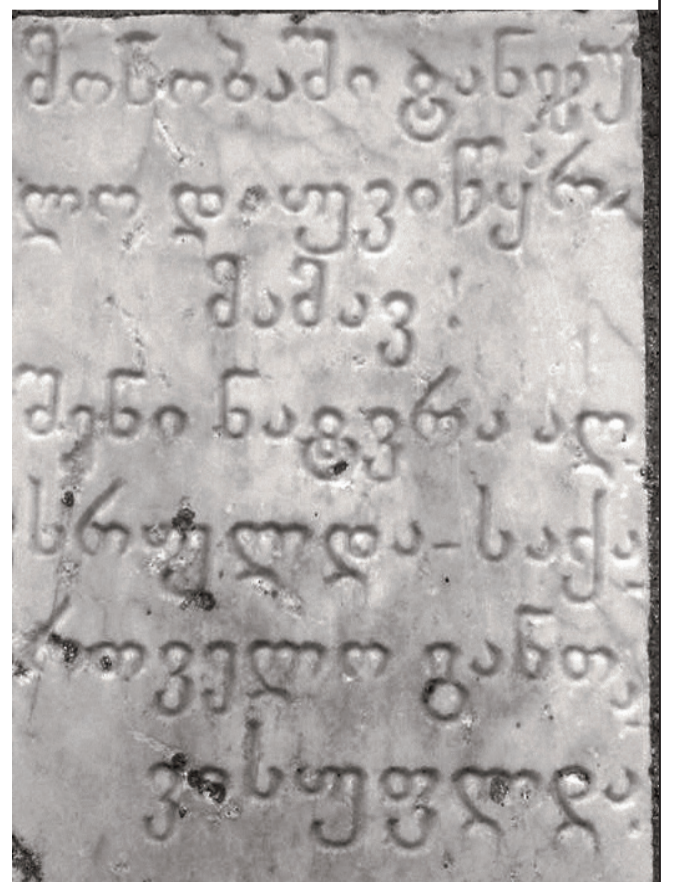 მონობაში ტანჯუ
ლო დაუვიწყარო
მამავ!
შენი ნატვრა აღ
სრულდა-საქა
რთველო განთა
ვისუფლდა.